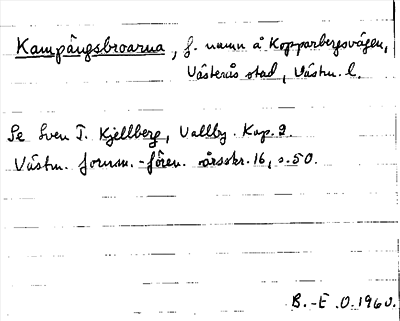 Kampängsbroarna, f. namn å Kopparbergsvägen,
Västerås stad, Västm. l.
Se Sven T. Kjellberg, Vallby. Kap. 2.
Västm. fornm.-fören. årsskr. 16, s. 50.
B.-E. O. 1960.